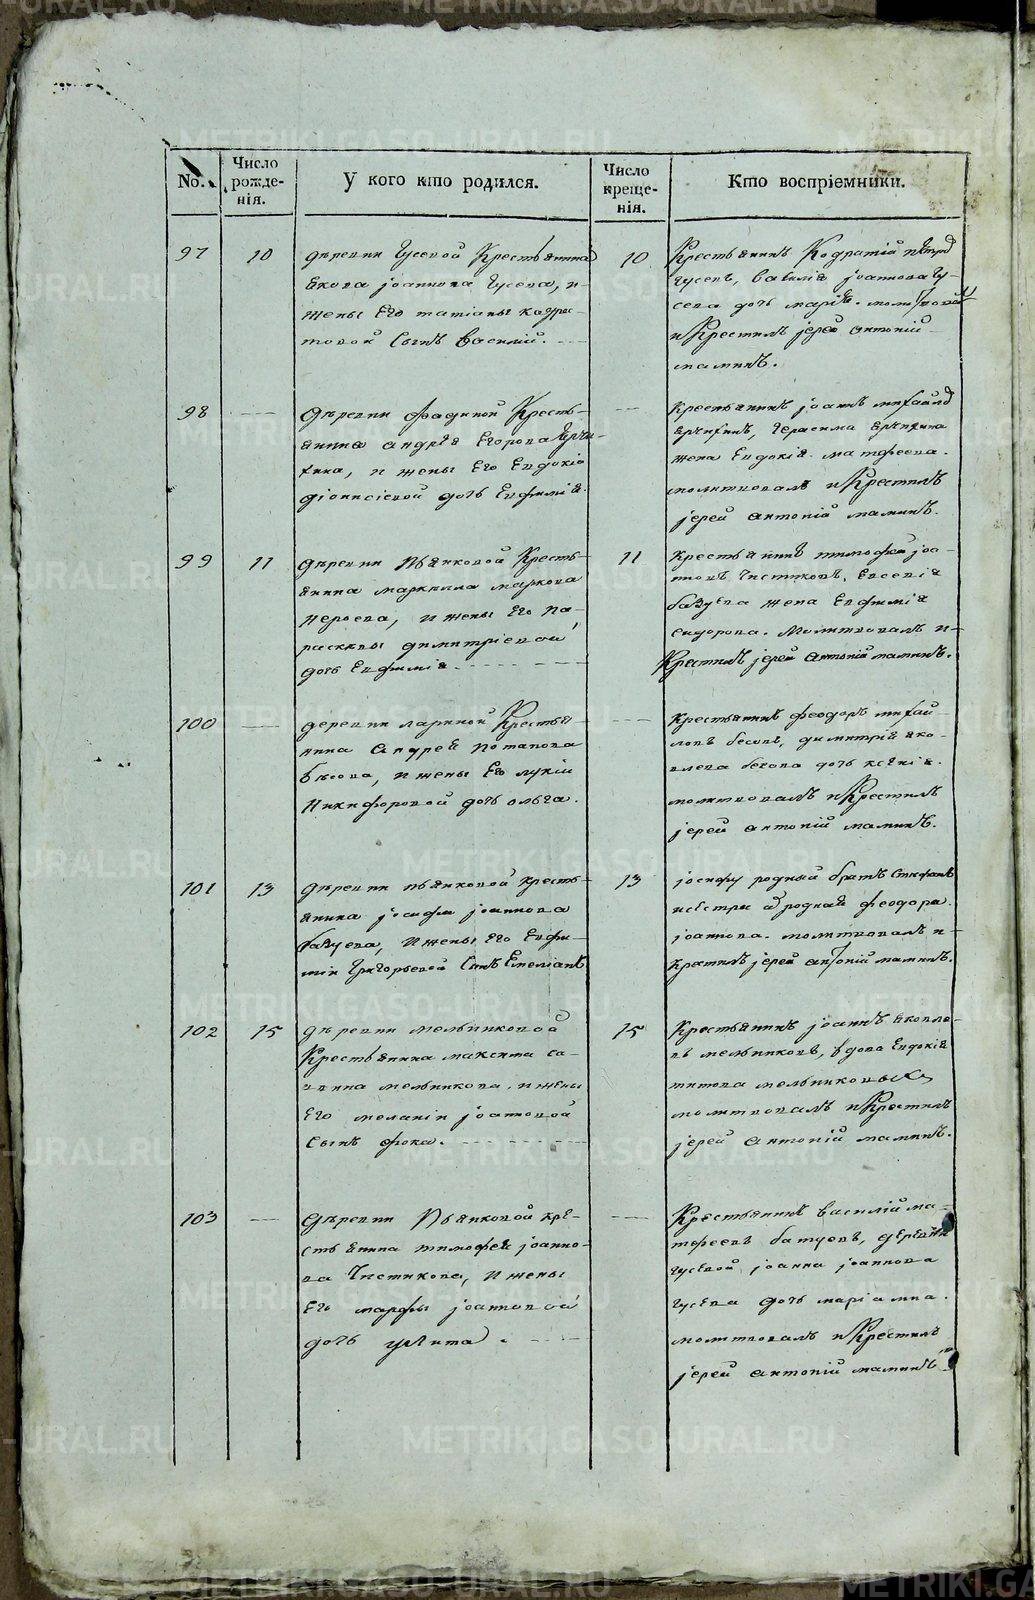 No.
Число рожде-нія.
У кого кто родился.
Число креще-нія.
Кто воспріемники.
97
10
деревни Гусевой Крестьянина
Якова Іоаннова Гусева, и
жены Его татіаны кодра-
товой Сынъ Василий.
10
Крестьянинъ Кодратій
Гусевъ, Іоаннова Гу-
сева дочь марія.
и Крестилъ іерей Антоній
маминъ.
98
Деревни Фадиной Кресть-
янина андрея Егорова
и жены Его Евдокіи
діонисіевой дочь Евфимія.
Крестьянинъ іоаннъ михайлов
Герасима
жена Евдокія матфеева.
молитвовалъ и Крестилъ
іерей антоній маминъ.
99
11
Деревни Пьянковой Кресть-
янина маркелла маркова
и жены Его па-
раскевы димитріевой
дочь Евфимія
11
Крестьянинъ тимофей іоан-
новъ Чистяковъ, Евсевія
батуева жена Евфимія
сидорова. молитвовалъ и
Крестилъ іерей Антоній маминъ.
100
деревни лариной Крестья-
нина Андрея потапова
бѣсова, и жены Его лукіи
Никифоровой дочь ольга.
Крестьянинъ феодоръ михай-
ловъ бесовъ, димитрія яко-
влева бесова дочь ксенія.
молитвовалъ и Крестилъ
іерей антоній маминъ.
101
13
Деревни пьянковой кресть-
янина іосифа іоаннова
батуева, и жены Его Евфи-
міи Григорьевой Сынъ Емеліанъ
13
іосифу родный братъ Стефанъ
и сестра родная феодора
іоаннова. молитвовалъ и
крестилъ іерей антоній маминъ.
102
15
деревни мельниковой
Крестьянина максима са-
ввина мельникова, и жены
Его меланіи іоанновой
Сынъ фока.
15
Крестьянинъ іоаннъ яковле-
въ мельниковъ, вдова Евдокія
титова мельниковых
молитвовалъ и Крестилъ
іерей антоній маминъ.
103
Деревни Пьянковой кре-
стьянина тимофея іоанно-
ва Чистякова, и жены
Его марфы іоанновой
дочь улита.
Крестьянинъ василій ма-
тфеевъ батуевъ, деревни
гусевой іоанна іоаннова
гусева дочь маріамна.
молитвовалъ и Крестилъ
іерей антоній маминъ
METRIKI.GASO-URAL.RU